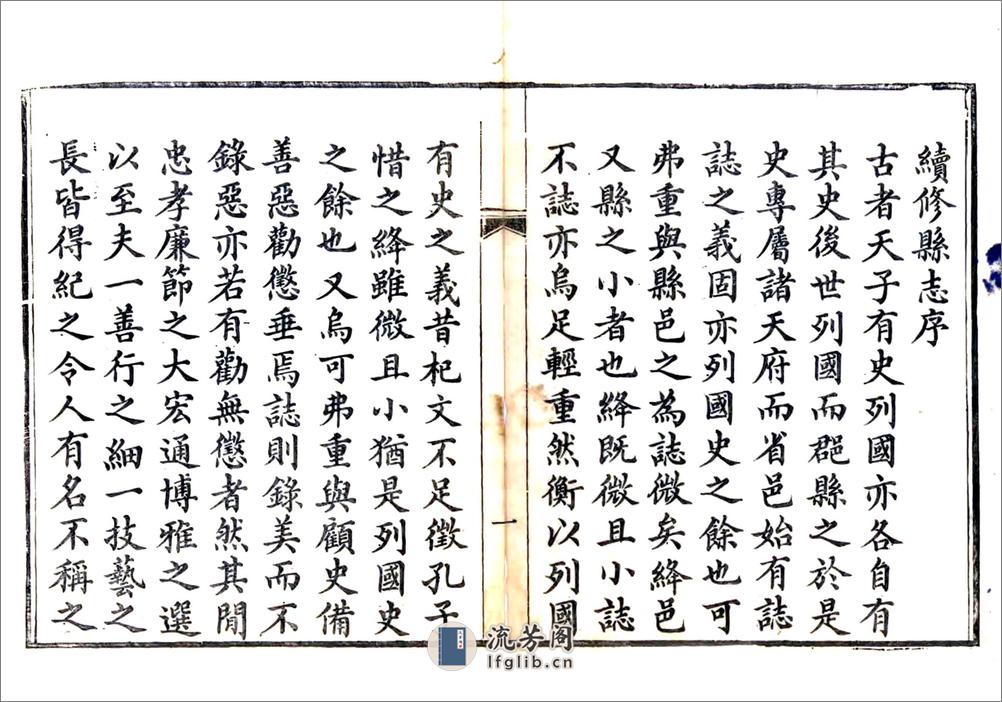 續修縣志序
古者天子有史列國亦各自有
其史後世列國而郡縣之於是
史專屬諸天府而省邑始有誌
誌之義固亦列國史之餘也可
弗重與縣邑之為誌微矣絳邑
又縣之小者也絳既微且小誌
不誌亦烏足輕重然衡以列國
一
有史之義昔杞文不足徵孔子
惜之絳雖微且小猶是列國史
之餘也又烏可弗重與顧史備
善惡勸懲垂焉誌則錄美而不
錄惡亦若有勸無懲者然其閒
忠孝廉節之大宏通博雅之選
以至夫一善行之細一技藝之
長皆得紀之令人有名不稱之
流芳閣
lfglib.cn